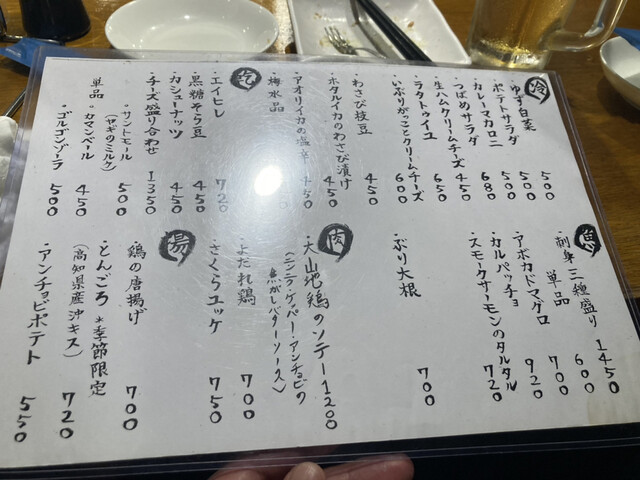 冷
・ゆず白菜 500
・ポテトサラダ 500
・カレーマカロニ 500
・つばめサラダ 680
・生ハムクリームチーズ 450
・ラタトゥイユ 650
・いぶりがっことクリームチーズ 600
・わさび枝豆 450
・ホタルイカのわさび漬け 450
・アオリイカの塩辛 450
・梅水晶
乾
・エイヒレ 720
・黒糖そら豆 450
・カシューナッツ 450
・チーズ盛り合わせ 1350
単品
・サントモール
(ヤギのミルク) 500
・カマンベール 450
・ゴルゴンゾーラ 500
魚
・刺身三種盛り 1450
単品 600
・アボカドマグロ 700
・カルパッチョ 920
・スモークサーモンのタルタル 720
・ぶり大根 700
肉
・大山地鶏のソテー 1200
(ニンニク・ケッパー・アンチョビの
焦がしバターソース)
・よだれ鶏 700
・さくらユッケ 750
揚
・鶏の唐揚げ 700
・とんごろ *季節限定
(高知県産沖キス) 720
・アンチョビポテト 550